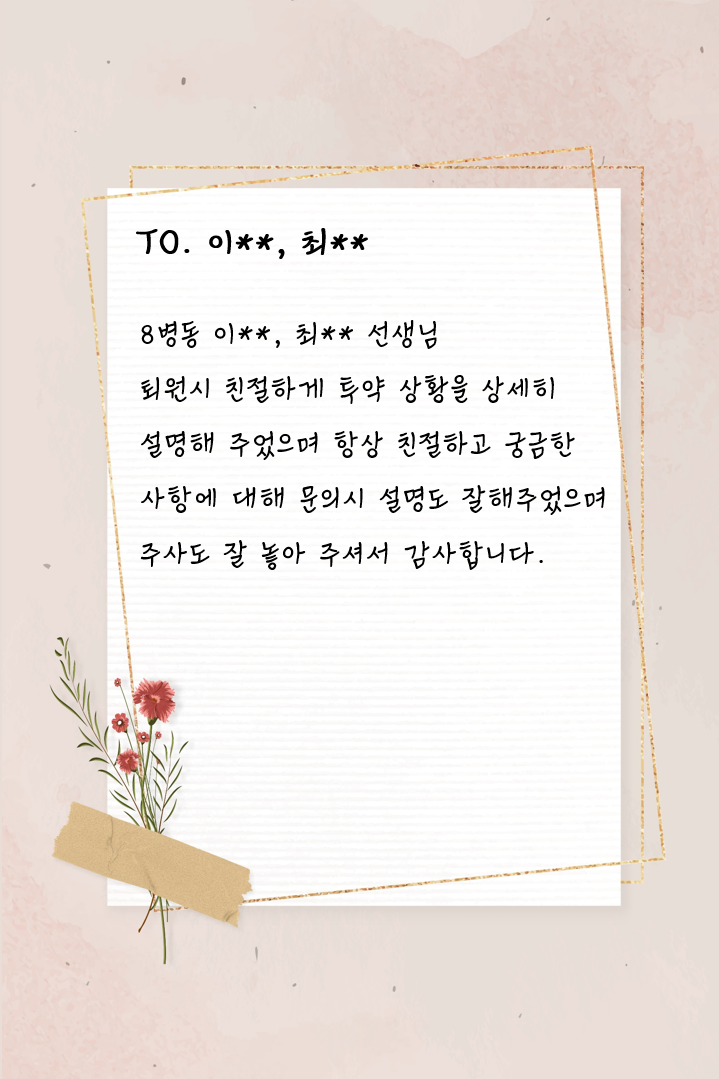 TO. 이**, 최**
8병동 이**, 최** 선생님
퇴원시 친절하게 투약 상황을 상세히
설명해 주었으며 항상 친절하고 궁금한
사항에 대해 문의시 설명도 잘해주었으며
주사도 잘 놓아 주셔서 감사합니다.